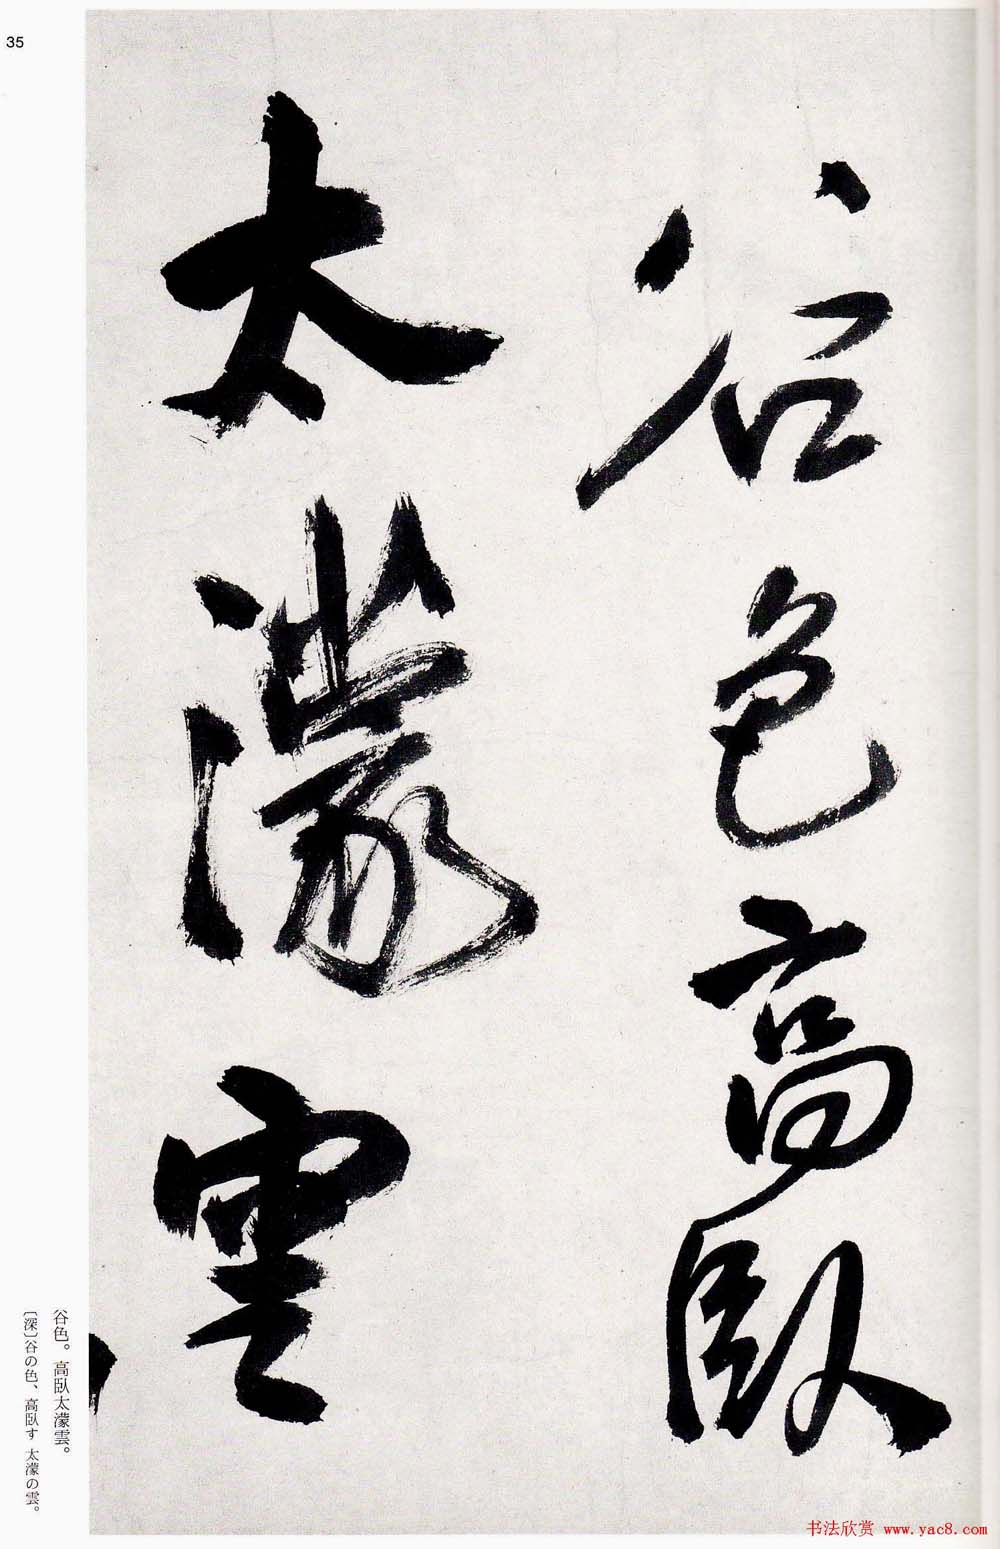 35
谷色高臥
太濛雲
谷色。高臥太濛雲。
〔深〕谷の色、高臥す 太濛の雲。
书法欣赏 www.yac8.com